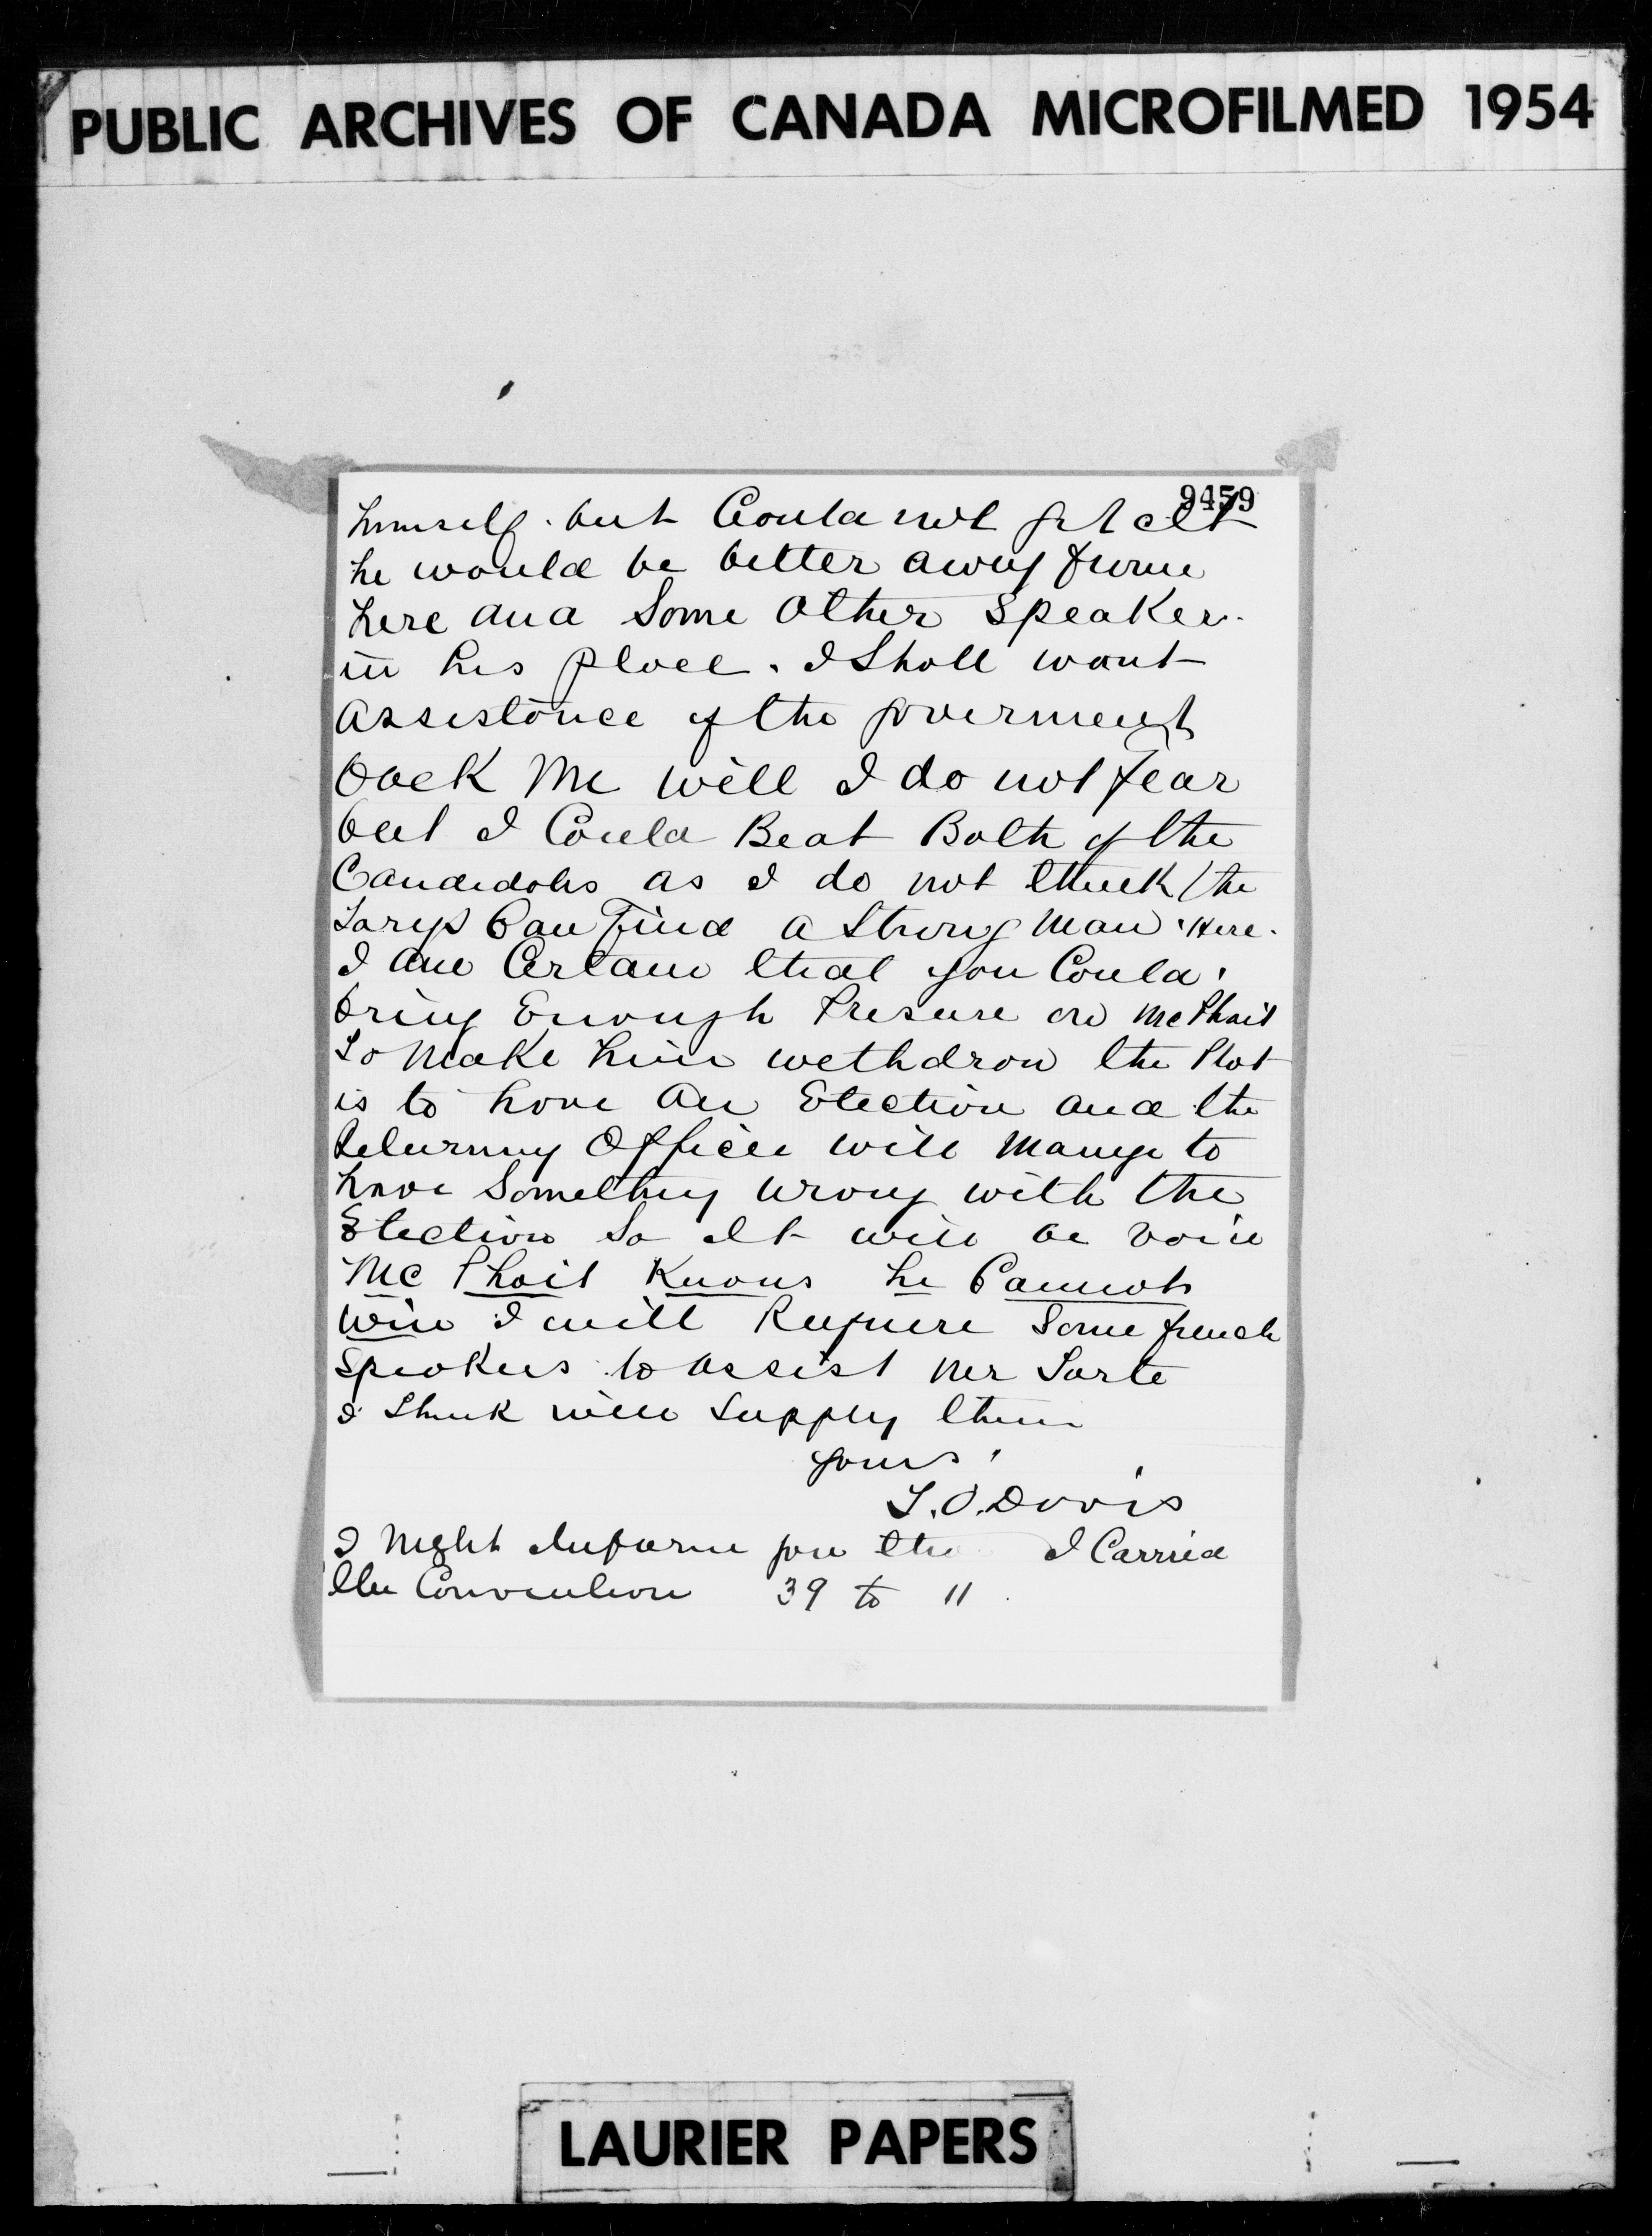 PUBLIC ARCHIVES OF CANADA MICROFILMED 1954
9459
himself. but Could not get it
he would be better away from
here and Some Other Speaker.
in his place. I Shall want
assistance if the goverment
back Me will I do not fear
but I Could Beat Both of the
Candidates as I do not think the
Torys Can Find a Strong Man Here.
I am Certain that you Could
bring Enough Presure on McPhail
To Make him withdraw the Plot
is to have an Election and the
Returning Officer will Mange to
have Something wrong with the
Election So It will be void
McPhail Knows he Cannot
win I will Require Some french
Speakers to assist Mr Tarte
I Think will Supply them
yours
T.O. Davis
I Might Inform you I Carried
the Convention 39 to 11.
LAURIER PAPERS